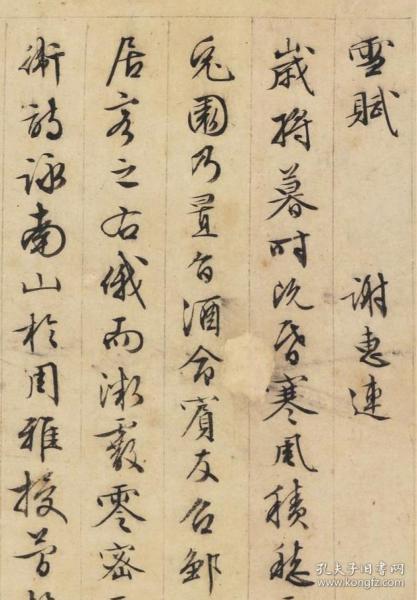 雪賦 謝惠連
歲將暮時既昏寒風積愁
兔園乃置旨酒命賓友召鄒
居客之右俄而微霰零密
衛詩詠南山於周雅授簡
孔夫子旧书网
www.kongfz.com